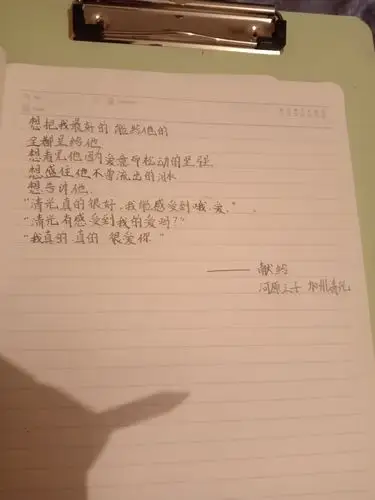 想把我最好的 能给他的
全都呈给他
想看见他因为爱意而松动的坚强
想盛住他不曾流出的泪水
想告诉他.
"清光真的很好,我能感受到哦.爱."
"清光有感受到我的爱吗?"
"我真的 真的 很爱你"
—— 献给
河原之子 加州清光